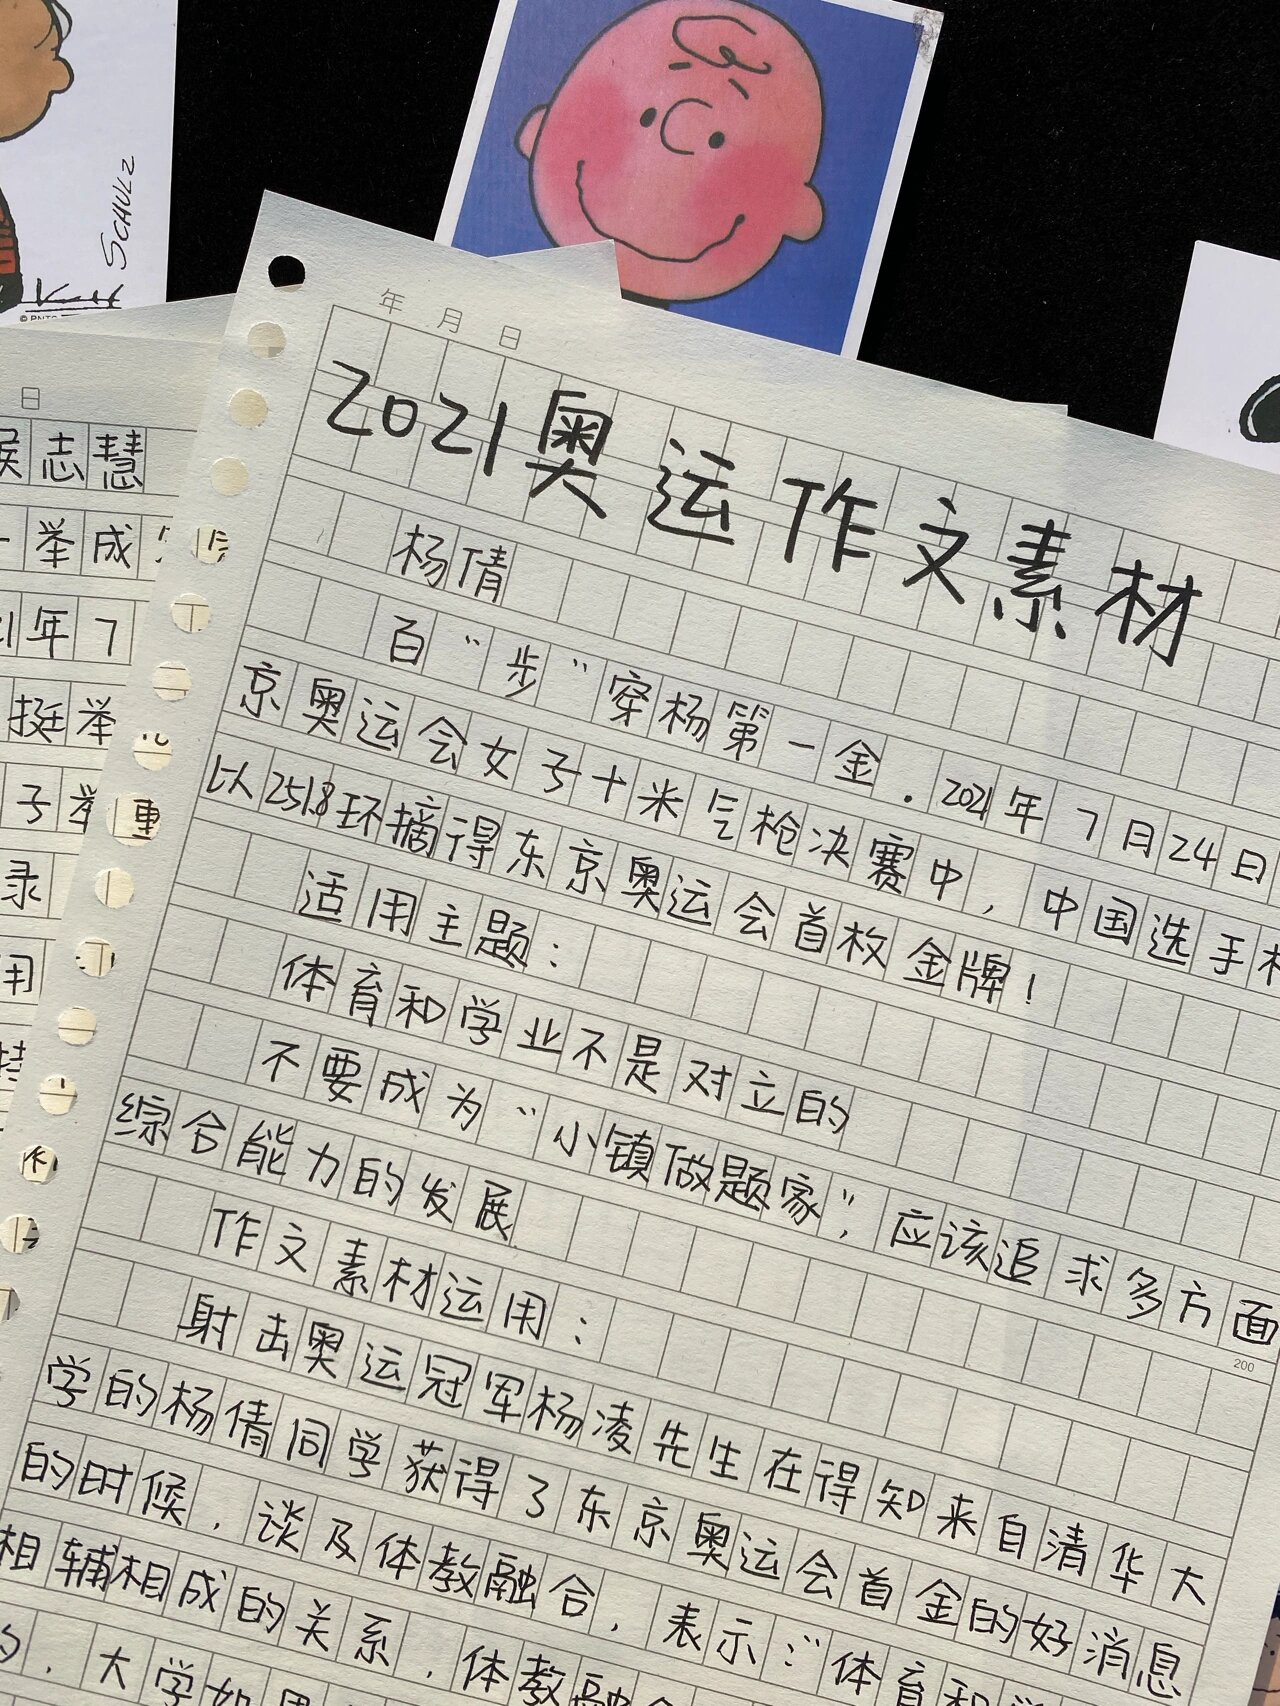 SCHULZ
年 月 日
2021奥运作文素材
杨倩
百“步”穿杨第一金.2021年7月24日
京奥运会女子十米气枪决赛中,中国选手
以251.8环摘得东京奥运会首枚金牌!
适用主题:
体育和学业不是对立的
不要成为“小镇做题家”,应该追求多方面
综合能力的发展
200
作文素材运用:
射击奥运冠军杨凌先生在得知来自清华大
学的杨倩同学获得了东京奥运会首金的好消息
的时候,谈及体教融合,表示:“体育和学
相辅相成的关系.体教融
大学如果
日
志慧
举成
年7
挺举
子举
录
用
重